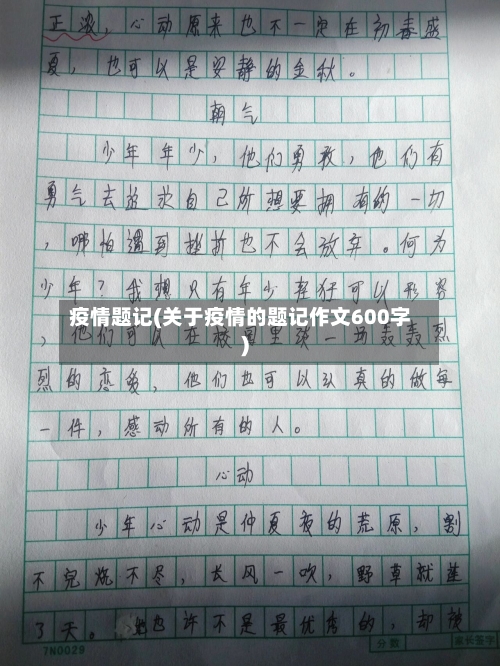 正浓，心动原来也不一定在初春盛
夏，也可以是安静的金秋。
朝气
少年年少，他们勇敢，他们有
勇气去追求自己所想要拥有的一切
，哪怕遇到挫折也不会放弃。何为
少年？我想只有年少轻狂可以形容
疫情题记(关于疫情的题记作文600字
)
，他们可以在校园里谈一场轰轰烈
烈的恋爱，他们也可以认真的做每
一件，感动所有的人。
心动
少年心动是仲夏夜的荒原，割
不完烧不尽，长风一吹，野草就连
了天。他也许不是最优秀的，却
7N0029
分数
家长签字